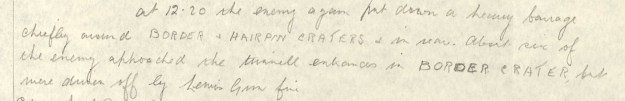 at 12.20 the enemy again put down a heavy barrage
chiefly around BORDER & HAIRPIN CRATERS & in rear. About six of
the enemy approached the tunnell entrances in BORDER CRATER, but
were driven off by Lewis Gun fire